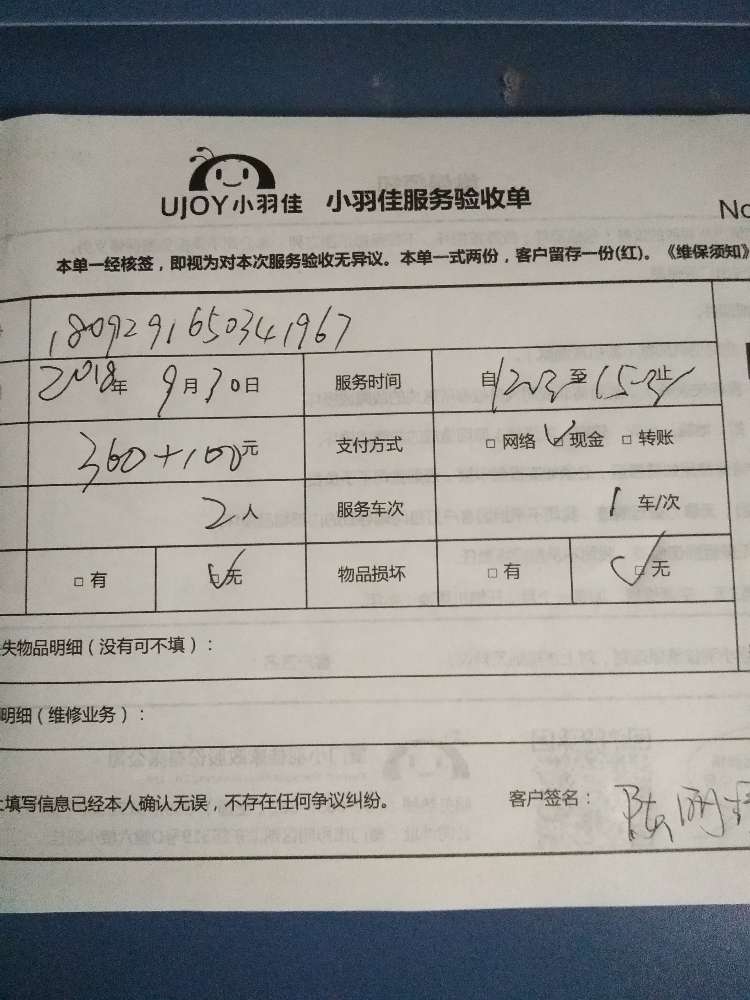 UJOY小羽佳 小羽佳服务验收单
No
本单一经核签，即视为对本次服务验收无异议。本单一式两份，客户留存一份(红)。《维保须知》
1809291650341967
2018年 9月30日 服务时间 自 至 止
360+100元 支付方式 □网络 ☑现金 □转账
2人 服务车次 1车/次
□有 ☑无 物品损坏 □有 ☑无
失物品明细（没有可不填）：
明细（维修业务）：
上填写信息已经本人确认无误，不存在任何争议纠纷。 客户签名：